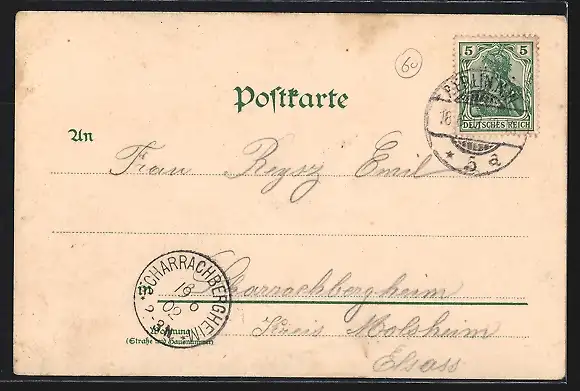 60
5 5
DEUTSCHES REICH
BERLIN
5 a
Postkarte
An
Frau Regsz Emil
in Scharrachbergheim
SCHARRACHBERGHEIM
18 6
02
2-3N
Wohnung
(Straße und Hausnummer)
Kreis Molsheim
Elsass